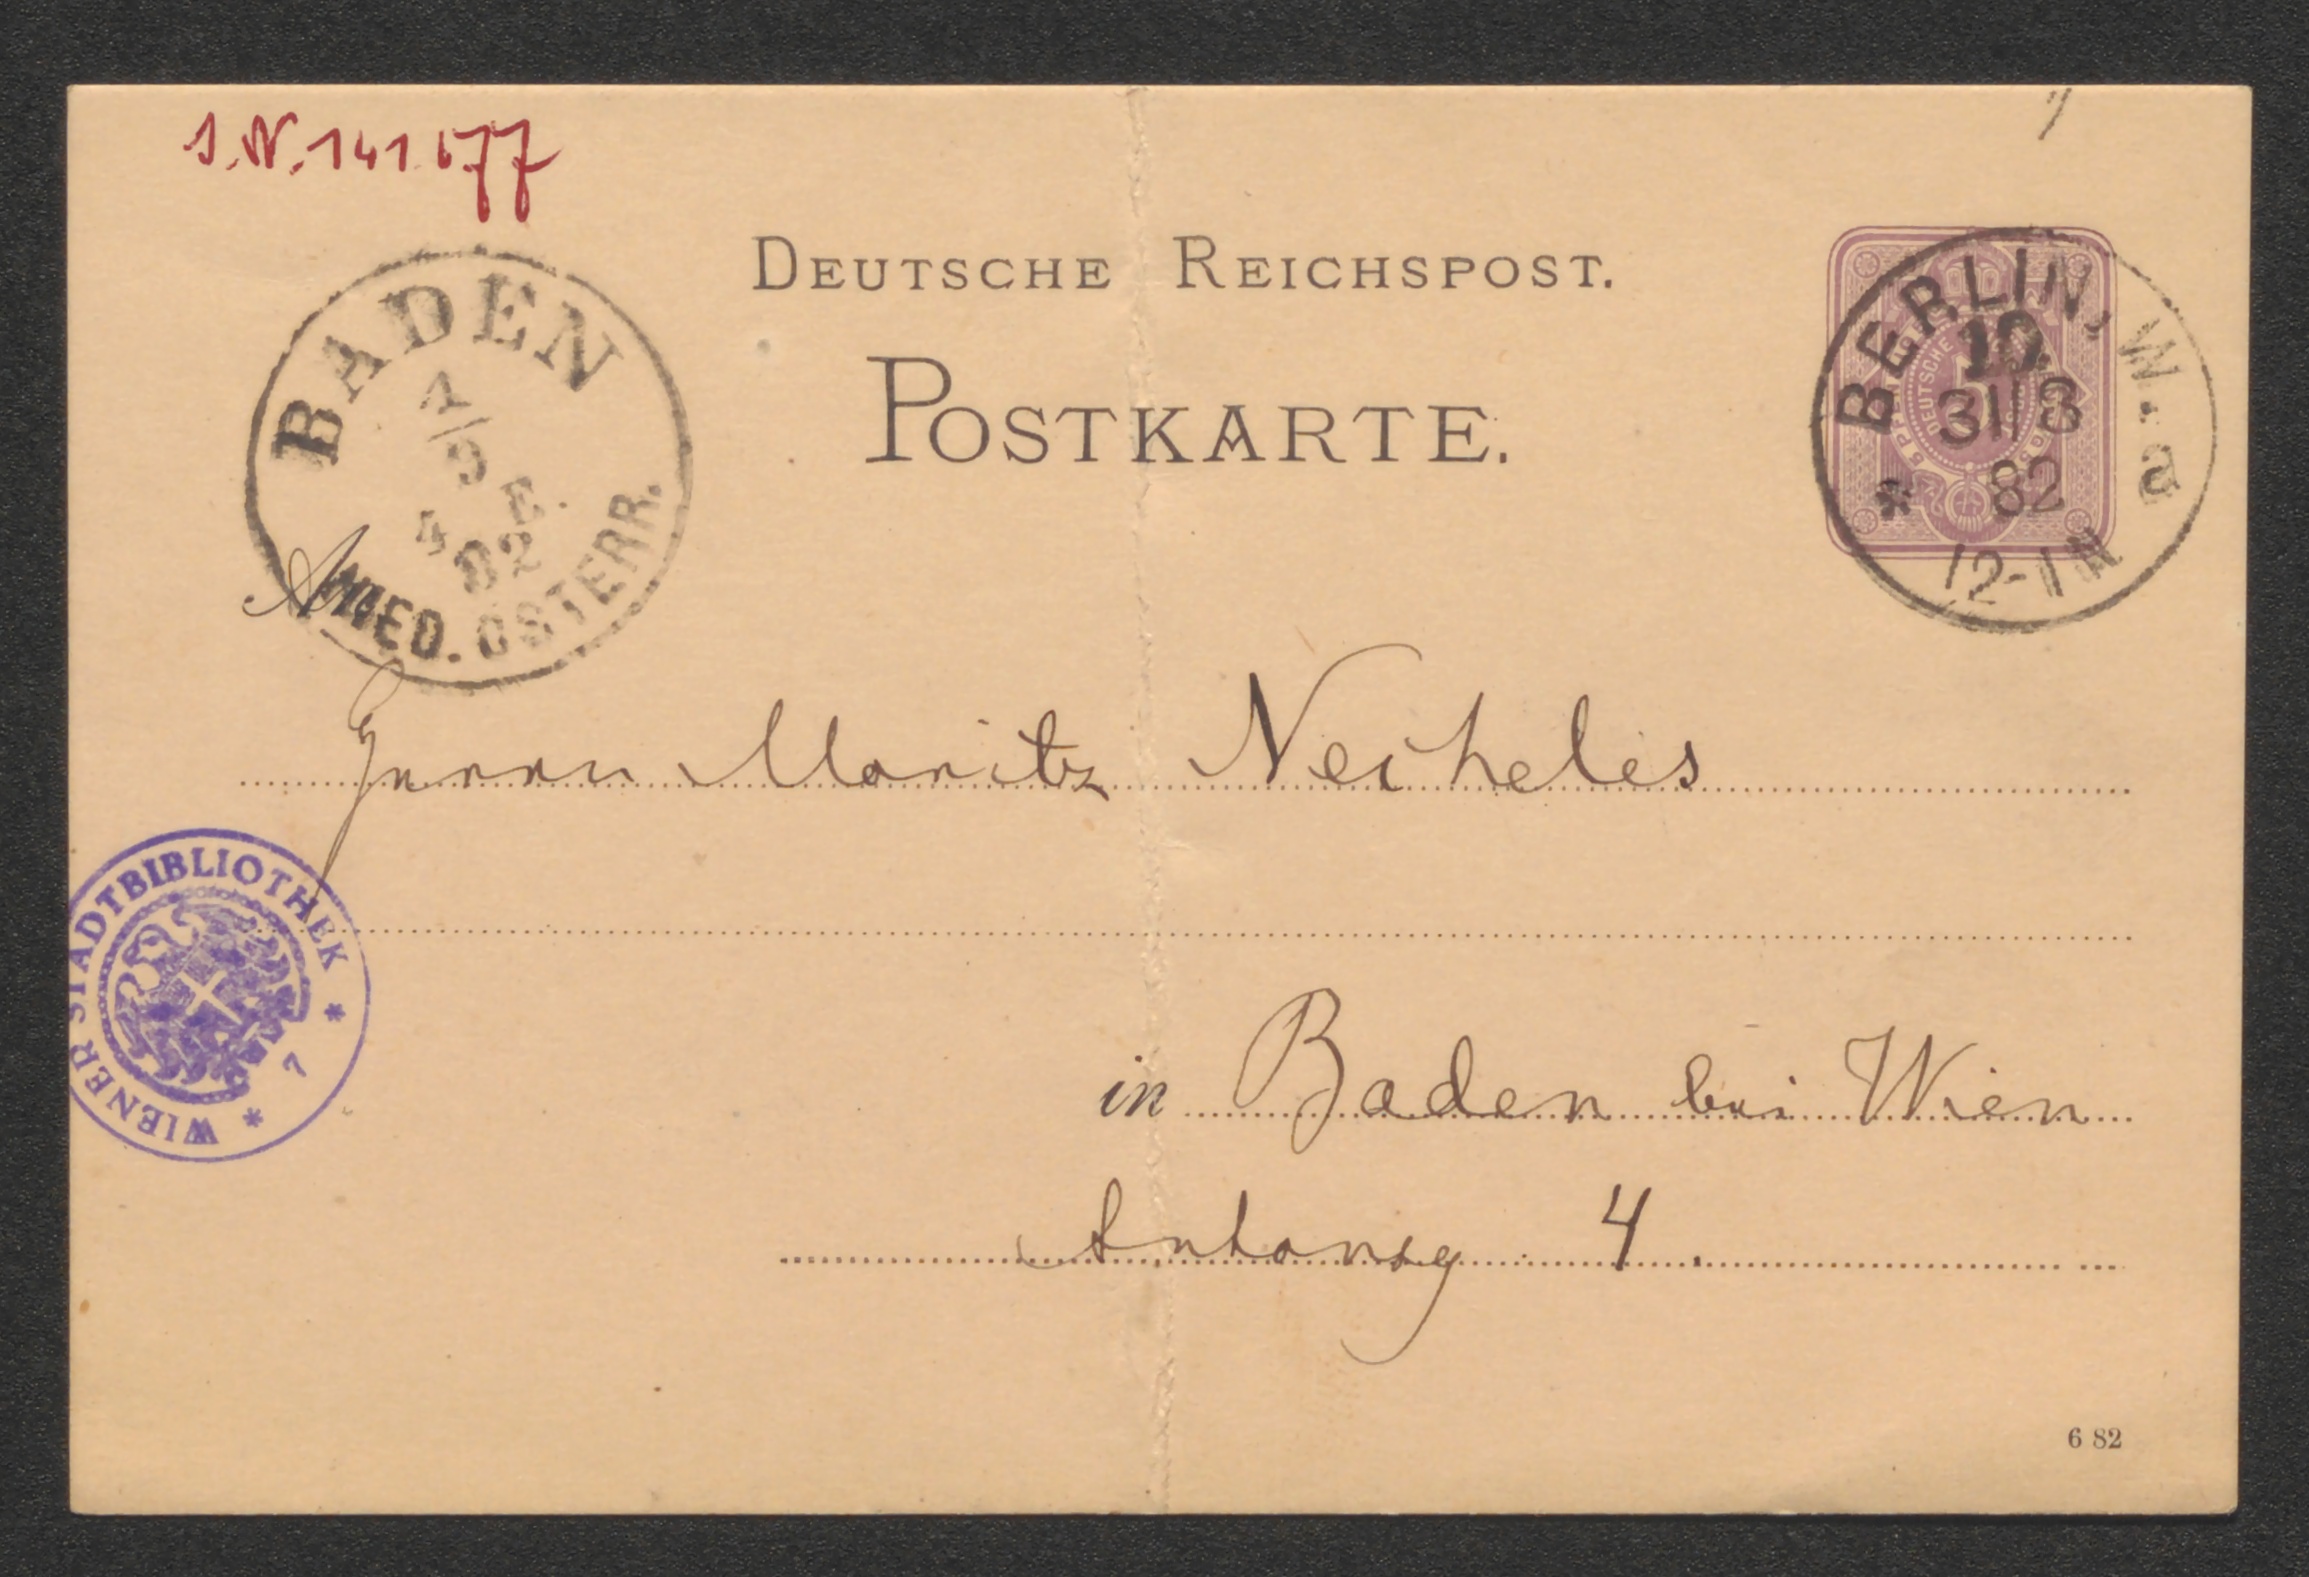 J.N. 141.677
DEUTSCHE REICHSPOST.
POSTKARTE.
BADEN
1/9
4 E.
82
NIED. OSTERR.
BERLIN, W. a
10.
31/8
82
12-1 N
*
An
Herrn Moritz Necheles
WIENER STADTBIBLIOTHEK
* 7 *
in Baden bei Wien
4.
6 82